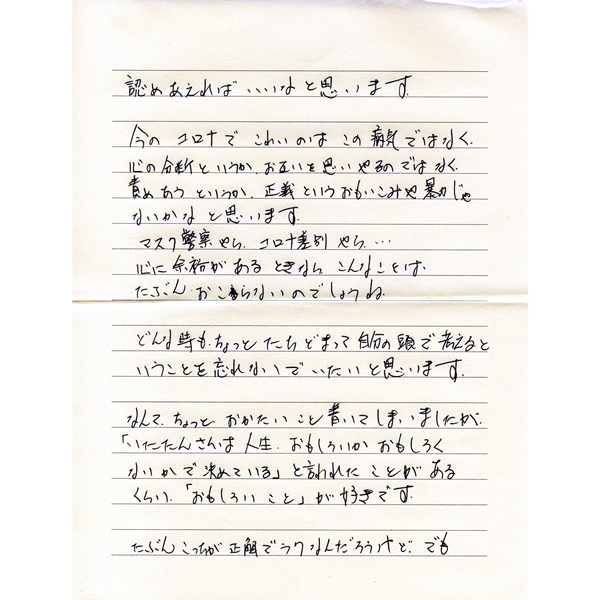 認めあえれば いいなと思います。
今の コロナで こわいのは この病気ではなく、
心の分断というか、お互いを思いやるのではなく、
責めあうというか、正義というおもいこみや暴力じゃ
ないかな と思います。
マスク警察やら、コロナ差別やら、…
心に余裕がある ときなら こんなことは、
たぶん おこらないのでしょうね。
どんな時も、ちょっと たちどまって 自分の頭で考えると
いうことを忘れないで いたいと思います。
なんて、ちょっと おかたいこと書いてしまいましたが、
「いたたんさんは 人生、おもしろいか おもしろく
ないかで決めている」と言われた ことがある
くらい、「おもしろい こと」が好きです。
たぶん こっちが 正解でラクなんだろうけど、でも